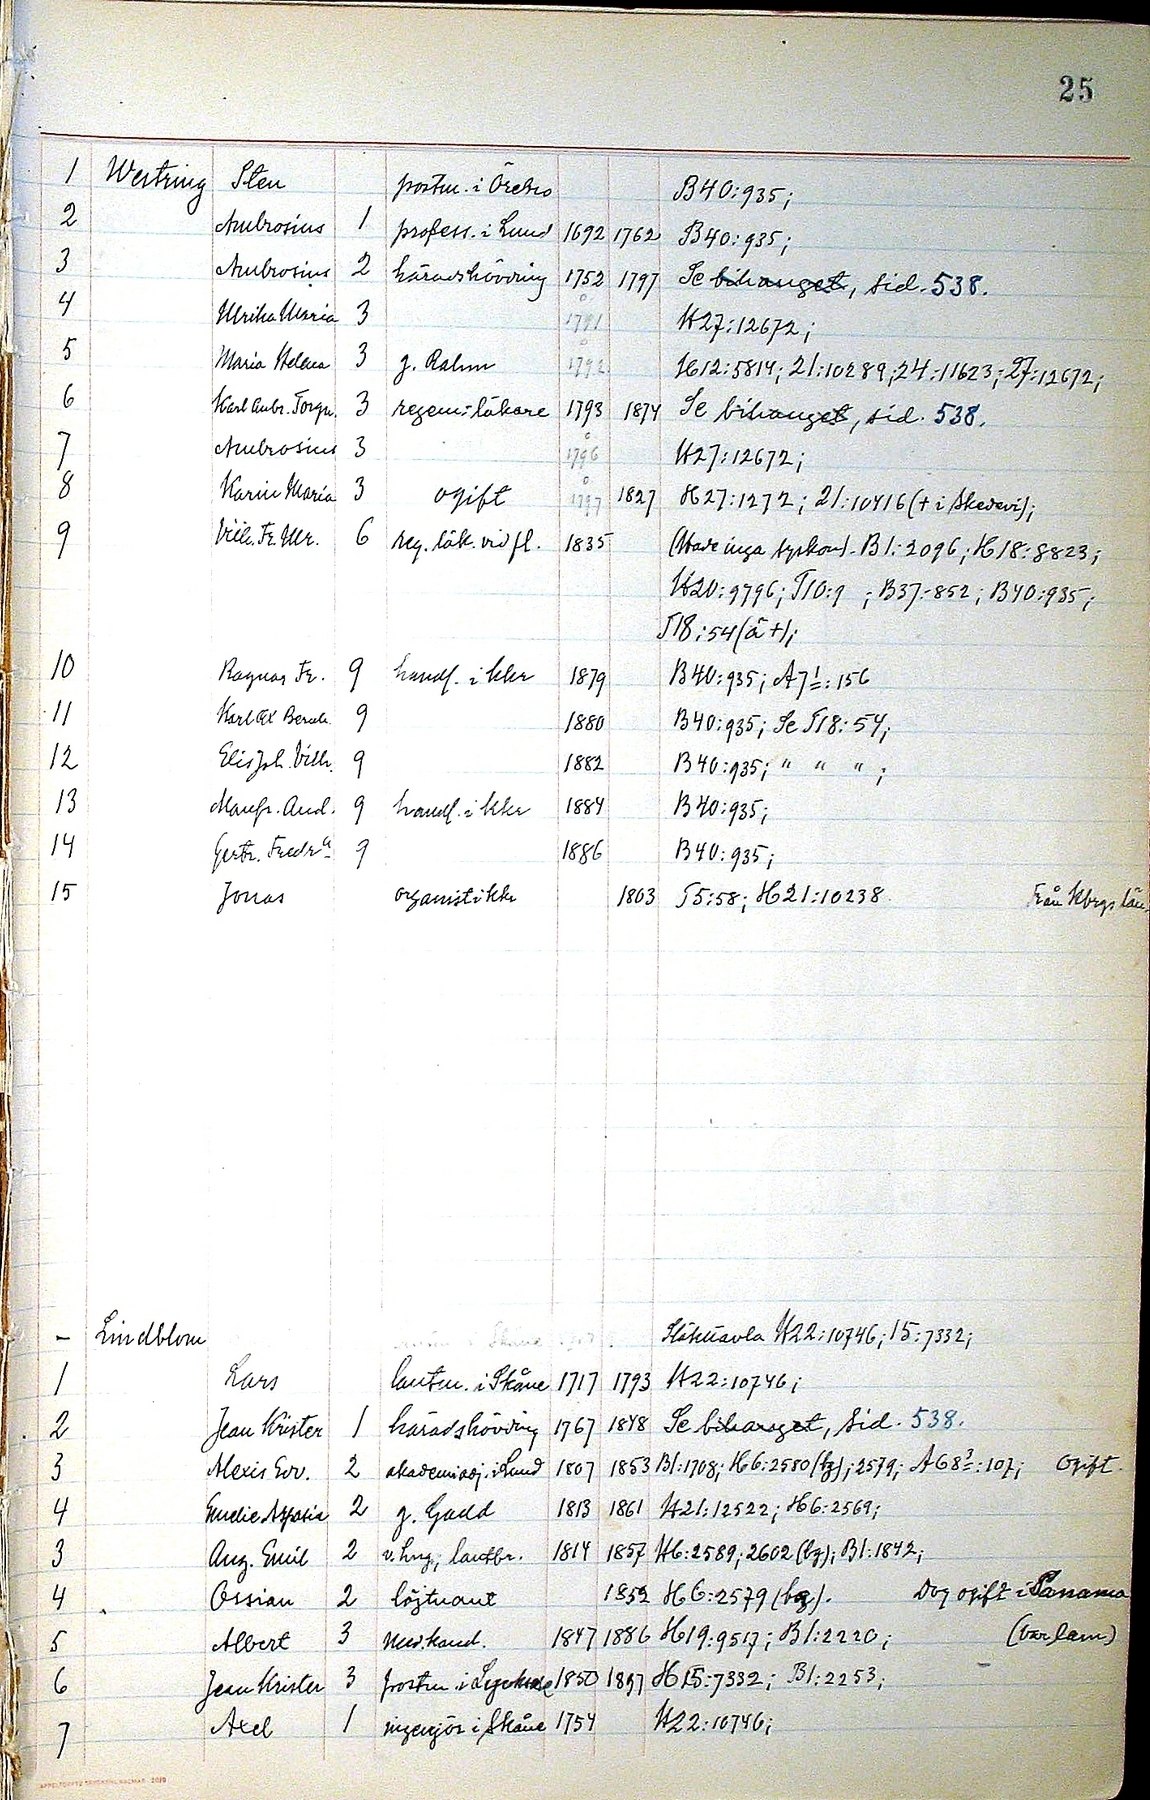 25
1 Westring Sten postm. i Örebro B40:935;
2 Ambrosius 1 profess. i Lund 1692 1762 B40:935;
3 Ambrosius 2 häradshövding 1752 1797 Se bihanget, sid. 538.
4 Ulrika Maria 3 1791 H27:12672;
5 Maria Helena 3 g. Rahm 1792 H12:5814; 21:10289; 24:11623; 27:12672;
6 Karl Ambr. Torgn. 3 regem:läkare 1793 1874 Se bihanget, sid. 538.
7 Ambrosius 3 1796 H27:12672;
8 Karin Maria 3 ogift 1797 1827 H27:1272; 21:10416 (+ i Skedevi);
9 Vilh. Fr. Ulr. 6 reg. läk. vid fl. 1835 (Hade inga syskon). B1:2096; H18:8823;
H20:9796; T10:9 ; B37:852; B40:935;
T18:54 (å +);
10 Ragnar Fr. 9 handl. i kkr 1879 B40:935; A7 1:156
11 Karl Ax Bernh. 9 1880 B40:935; Se T18:54;
12 Elis Joh. Vilh. 9 1882 B40:935; " " " ;
13 Manfr. And. 9 handl. i kkr 1884 B40:935;
14 Gertr. Fredr:a 9 1886 B40:935;
15 Jonas organist i kkr 1803 T5:58; H21:10238 Från Kbergs län.
– Lindblom Släkttavla H22:10746; 15:7332;
1 Lars lantm. i Skåne 1717 1793 H22:10746;
2 Jean Krister 1 häradshövding 1767 1848 Se bihanget, sid. 538.
3 Alexis Edv. 2 akademiadj. i Lund 1807 1853 B1:1708; H6:2580 (bg); 2579; A68 3:107; Ogift.
4 Emelie Aspasia 2 g. Gadd 1813 1861 H21:12522; H6:2569;
3 Aug. Emil 2 v. hng; lantbr. 1814 1857 H6:2589; 2602 (bg); B1:1842;
4 Ossian 2 löjtnant 1852 H6:2579 (bg). Dog ogift i Panama
5 Albert 3 med. kand. 1847 1886 H19:9517; B1:2220; (var lam)
6 Jean Krister 3 postm. i Lycksele 1850 1897 H15:7332; B1:2253;
7 Axel 1 ingenjör i Skåne 1754 H22:10746;